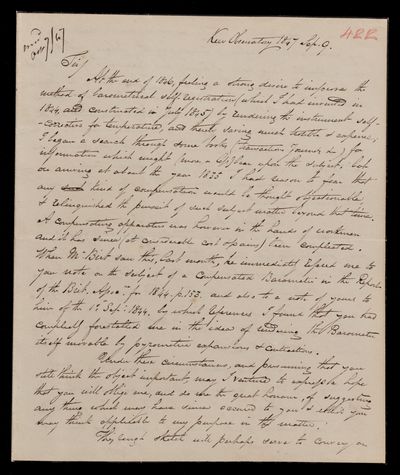 Kew Observatory 1847 Sep. 9.
422
Sir/
At the end of 1846, feeling a strong desire to improve the
method of barometrical self-registration (which I had invented in
1844, and constructed in July 1845) by rendering the instrument self-
-corrective for temperature, and thereby saving much trouble & expense,
I began a search through some works, (Transactions, Journals &c) for
information which might have a bearing upon the subject; but
on arriving at about the year 1835 I had reason to fear that
any kind of compensation would be thought objectionable;
I relinquished the pursuit of such subject matter beyond that time.
A compensating apparatus was however in the hands of workmen
and it has since (at considerable cost & pains) been completed.
When Mr Birt saw this, last month, he immediately referred me to
your note on the subject of a Compensated Barometer in the Reports
of the Brit. Assocn for 1844. p. 153. and also to a note of yours to
him of the 1st Sepr 1844, by which references I found that you had
completely forestalled me in the idea of rendering the Barometer
itself movable by pyrometric expansions & contractions.
Under these circumstances, and presuming that you
still think the object important, may I venture to express the hope
that you will oblige me, and do me the great honour, of suggesting
any thing which may have since occurred to you & which you
may think applicable to my purpose in this matter.
The rough sketch will perhaps serve to convey an